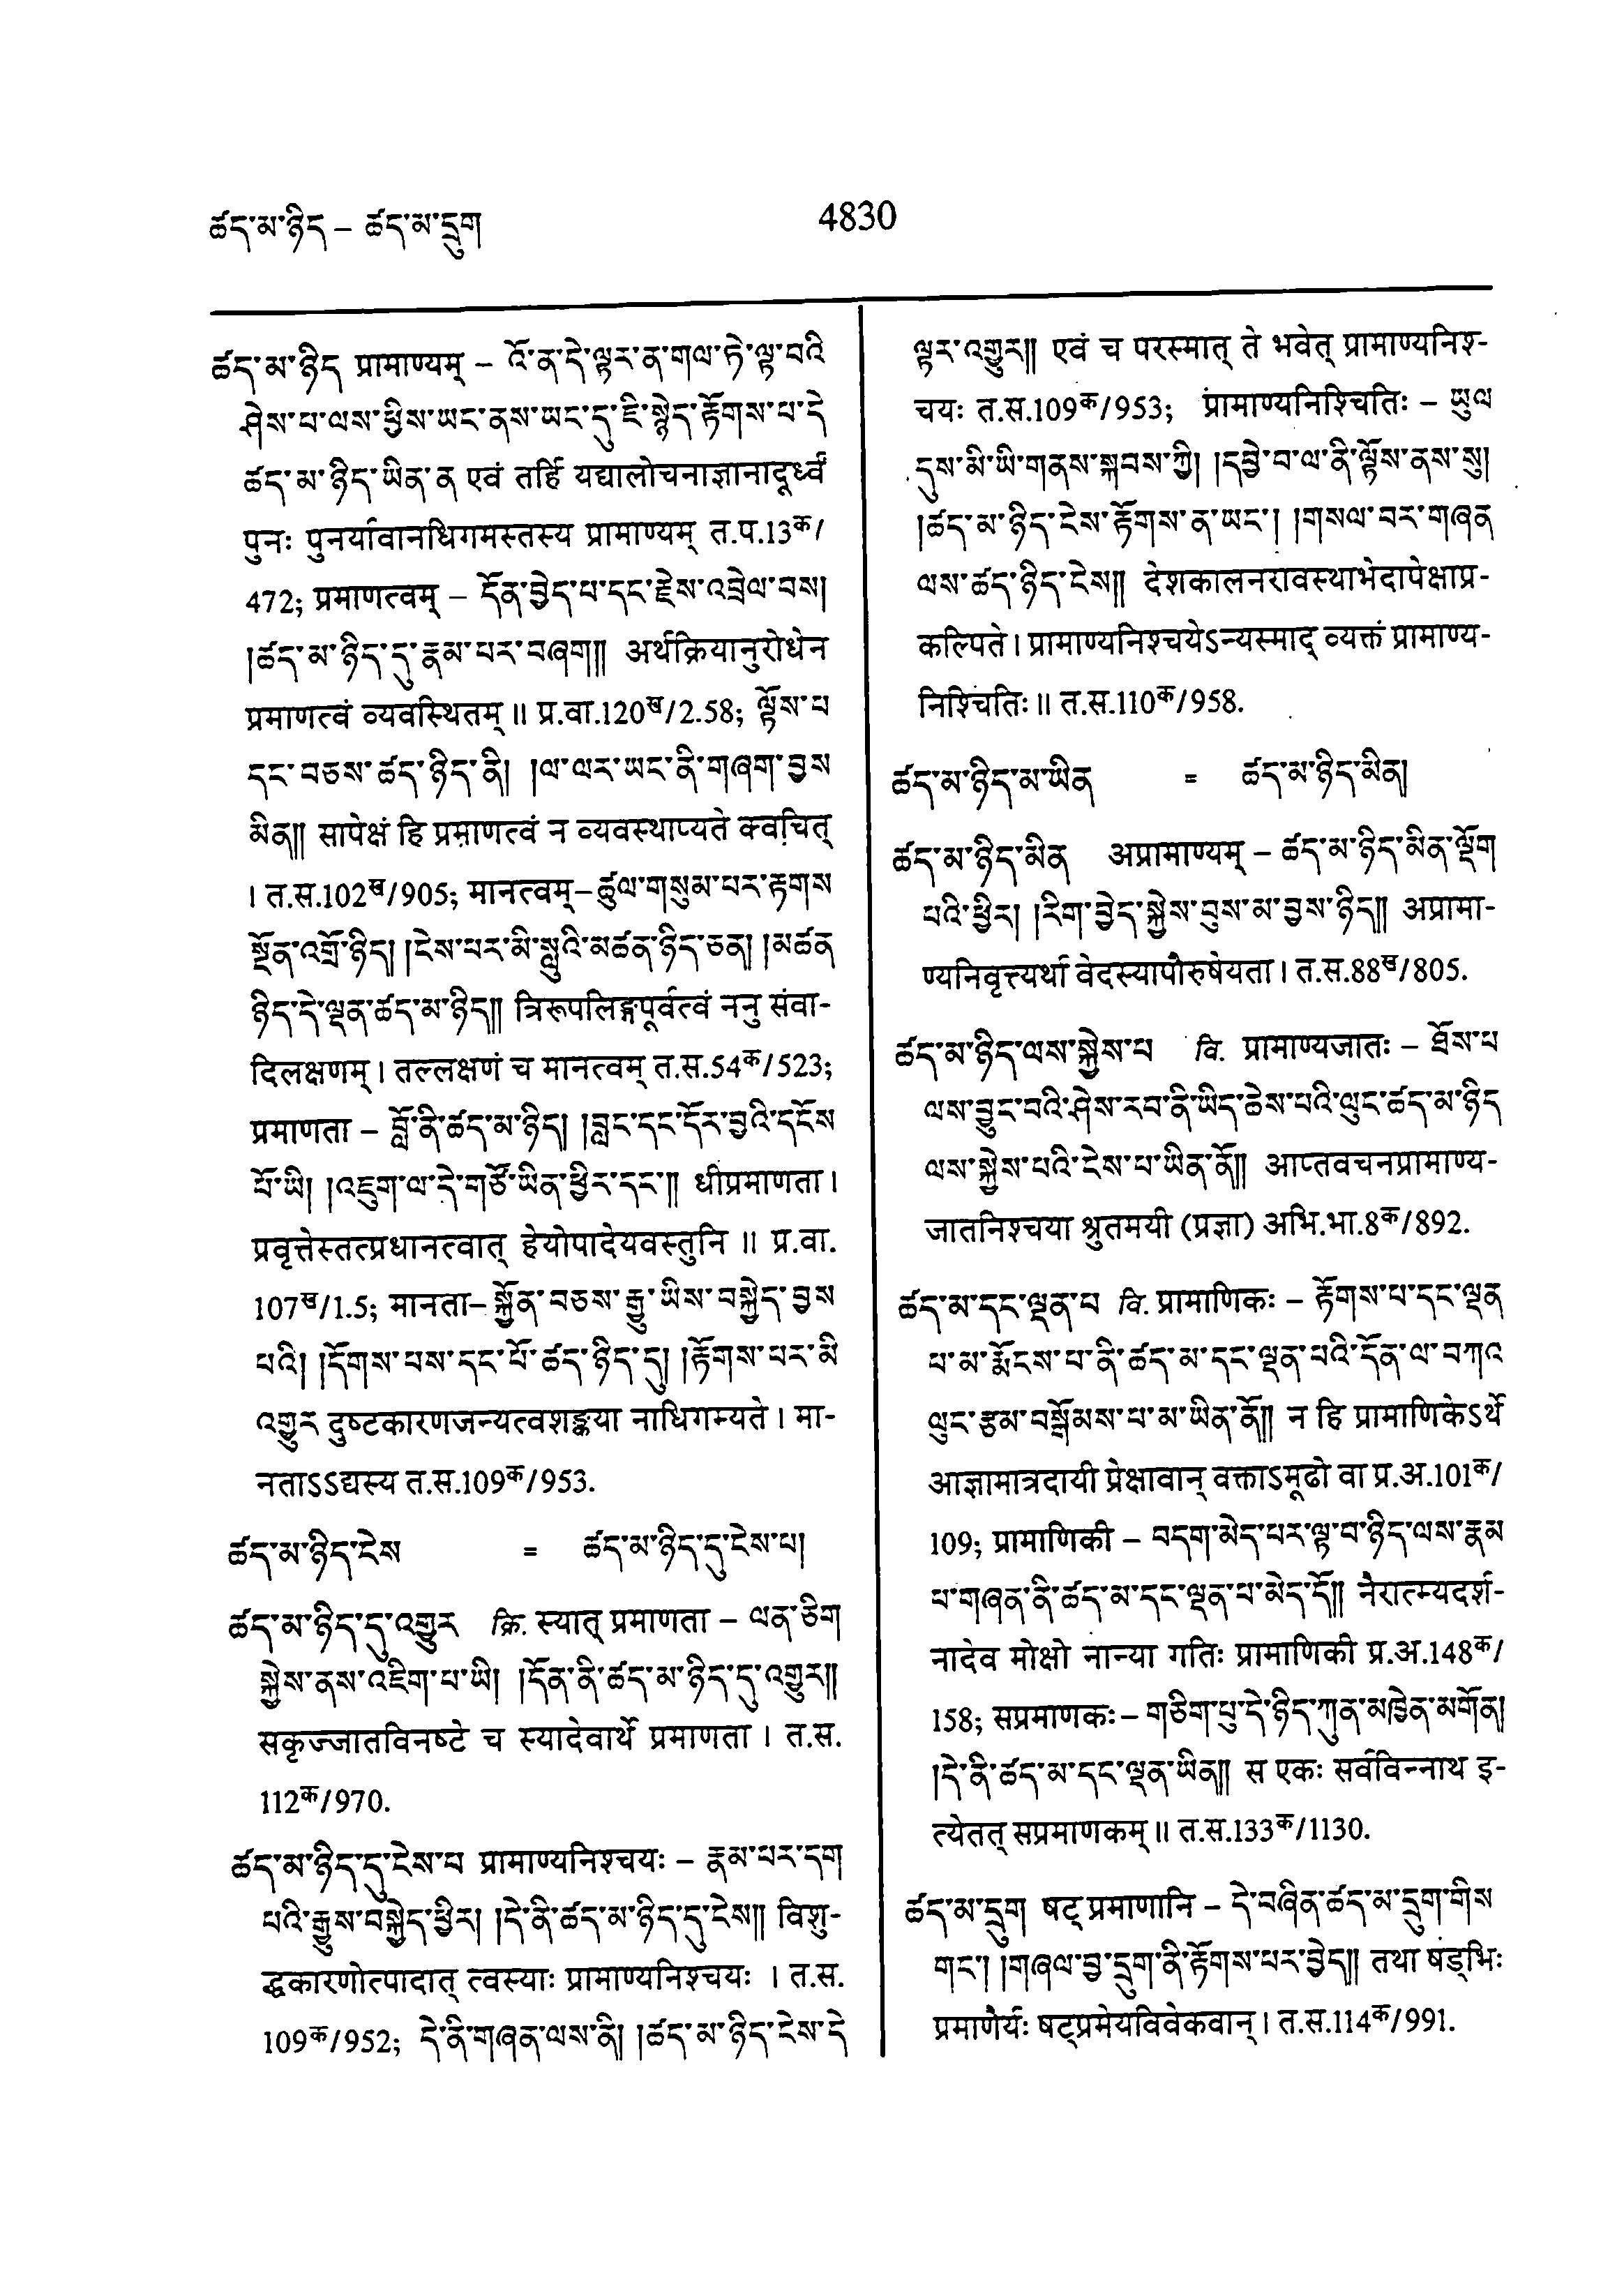 ཚད་མ་ཉིད – ཚད་མ་དྲུག
4830
ཚད་མ་ཉིད प्रामाण्यम् – འོ་ན་དེ་ལྟར་ན་གལ་ཏེ་ལྟ་བའི
ཤེས་པ་ལས་ཕྱིས་ཡང་ནས་ཡང་དུ་ཇི་སྙེད་རྟོགས་པ་དེ
ཚད་མ་ཉིད་ཡིན་ན एवं तर्हि यद्यालोचनाज्ञानादूर्ध्वं
पुनः पुनर्यावानधिगमस्तस्य प्रामाण्यम् त.प.13क/
472; प्रमाणत्वम् – དོན་བྱེད་པ་དང་རྗེས་འབྲེལ་བས།
།ཚད་མ་ཉིད་དུ་རྣམ་པར་བཞག།། अर्थक्रियानुरोधेन
प्रमाणत्वं व्यवस्थितम्॥ प्र.वा.120ख/2.58; ལྟོས་པ
དང་བཅས་ཚད་ཉིད་ནི། །ལ་ལར་ཡང་ནི་གཞག་བྱས
མིན།། सापेक्षं हि प्रमाणत्वं न व्यवस्थाप्यते क्वचित्
। त.स.102ख/905; मानत्वम्–ཚུལ་གསུམ་པར་རྟགས
སྔོན་འགྲོ་ཉིད། །ངེས་པར་མི་སླུའི་མཚན་ཉིད་ཅན། །མཚན
ཉིད་དེ་ལྡན་ཚད་མ་ཉིད།། त्रिरूपलिङ्गपूर्वत्वं ननु संवा-
दिलक्षणम्। तल्लक्षणं च मानत्वम् त.स.54क/523;
प्रमाणता – བློ་ནི་ཚད་མ་ཉིད། །བླང་དང་དོར་བྱའི་དངོས
པོ་ཡི། །འཇུག་ལ་དེ་གཙོ་ཡིན་ཕྱིར་དང་།། धीप्रमाणता।
प्रवृत्तेस्तत्प्रधानत्वात् हेयोपादेयवस्तुनि॥ प्र.वा.
107ख/1.5; मानता–སྐྱོན་བཅས་རྒྱུ་ཡིས་བསྐྱེད་བྱས
པའི། །དོགས་པས་དང་པོ་ཚད་ཉིད་དུ། །རྟོགས་པར་མི
འགྱུར दुष्टकारणजन्यत्वशङ्कया नाधिगम्यते। मा-
नताऽऽद्यस्य त.स.109क/953.
ཚད་མ་ཉིད་ངེས = ཚད་མ་ཉིད་དུ་ངེས་པ།
ཚད་མ་ཉིད་དུ་འགྱུར क्रि. स्यात् प्रमाणता – ལན་ཅིག
སྐྱེས་ནས་འཇིག་པ་ཡི། །དོན་ནི་ཚད་མ་ཉིད་དུ་འགྱུར།།
सकृज्जातविनष्टे च स्यादेवार्थे प्रमाणता। त.स.
112क/970.
ཚད་མ་ཉིད་དུ་ངེས་པ प्रामाण्यनिश्चयः – རྣམ་པར་དག
པའི་རྒྱུས་བསྐྱེད་ཕྱིར། །དེ་ནི་ཚད་མ་ཉིད་དུ་ངེས།། विशु-
द्धकारणोत्पादात् त्वस्याः प्रामाण्यनिश्चयः। त.स.
109क/952; དེ་ནི་གཞན་ལས་ནི། །ཚད་མ་ཉིད་ངེས་དེ
ལྟར་འགྱུར།། एवं च परस्मात् ते भवेत् प्रामाण्यनिश्-
चयः त.स.109क/953; प्रामाण्यनिश्चितिः – ཡུལ
དུས་མི་ཡི་གནས་སྐབས་ཀྱི། །དབྱེ་བ་ལ་ནི་ལྟོས་ནས་སུ།
།ཚད་མ་ཉིད་ངེས་རྟོགས་ན་ཡང་། །གསལ་བར་གཞན
ལས་ཚད་ཉིད་ངེས།། देशकालनरावस्थाभेदापेक्षाप्र-
कल्पिते। प्रामाण्यनिश्चयेऽन्यस्माद् व्यक्तं प्रामाण्य-
निश्चितिः॥ त.स.110क/958.
ཚད་མ་ཉིད་མ་ཡིན = ཚད་མ་ཉིད་མིན།
ཚད་མ་ཉིད་མིན अप्रामाण्यम् – ཚད་མ་ཉིད་མིན་ལྡོག
པའི་ཕྱིར། །རིག་བྱེད་སྐྱེས་བུས་མ་བྱས་ཉིད།། अप्रामा-
ण्यनिवृत्त्यर्था वेदस्यापौरुषेयता। त.स.88ख/805.
ཚད་མ་ཉིད་ལས་སྐྱེས་པ वि. प्रामाण्यजातः – ཐོས་པ
ལས་བྱུང་བའི་ཤེས་རབ་ནི་ཡིད་ཆེས་པའི་ལུང་ཚད་མ་ཉིད
ལས་སྐྱེས་པའི་ངེས་པ་ཡིན་ནོ།། आप्तवचनप्रामाण्य-
जातनिश्चया श्रुतमयी (प्रज्ञा) अभि.भा.8क/892.
ཚད་མ་དང་ལྡན་པ वि. प्रामाणिकः – རྟོགས་པ་དང་ལྡན
པ་མ་རྨོངས་པ་ནི་ཚད་མ་དང་ལྡན་པའི་དོན་ལ་བཀའ
ལུང་རྩམ་བསྒོམས་པ་མ་ཡིན་ནོ།། न हि प्रामाणिकेऽर्थे
आज्ञामात्रदायी प्रेक्षावान् वक्ताऽमूढो वा प्र.अ.101क/
109; प्रामाणिकी – བདག་མེད་པར་ལྟ་བ་ཉིད་ལས་རྣམ
པ་གཞན་ནི་ཚད་མ་དང་ལྡན་པ་མེད་དོ།། नैरात्म्यदर्श-
नादेव मोक्षो नान्या गतिः प्रामाणिकी प्र.अ.148क/
158; सप्रमाणकः – གཅིག་པུ་དེ་ཉིད་ཀུན་མཁྱེན་མགོན།
།དེ་ནི་ཚད་མ་དང་ལྡན་ཡིན།། स एकः सर्वविन्नाथ इ-
त्येतत् सप्रमाणकम्॥ त.स.133क/1130.
ཚད་མ་དྲུག षट् प्रमाणानि – དེ་བཞིན་ཚད་མ་དྲུག་གིས
གང་། །གཞལ་བྱ་དྲུག་ནི་རྟོགས་པར་བྱེད།། तथा षड्भिः
प्रमाणैर्यः षट्प्रमेयविवेकवान्। त.स.114क/991.